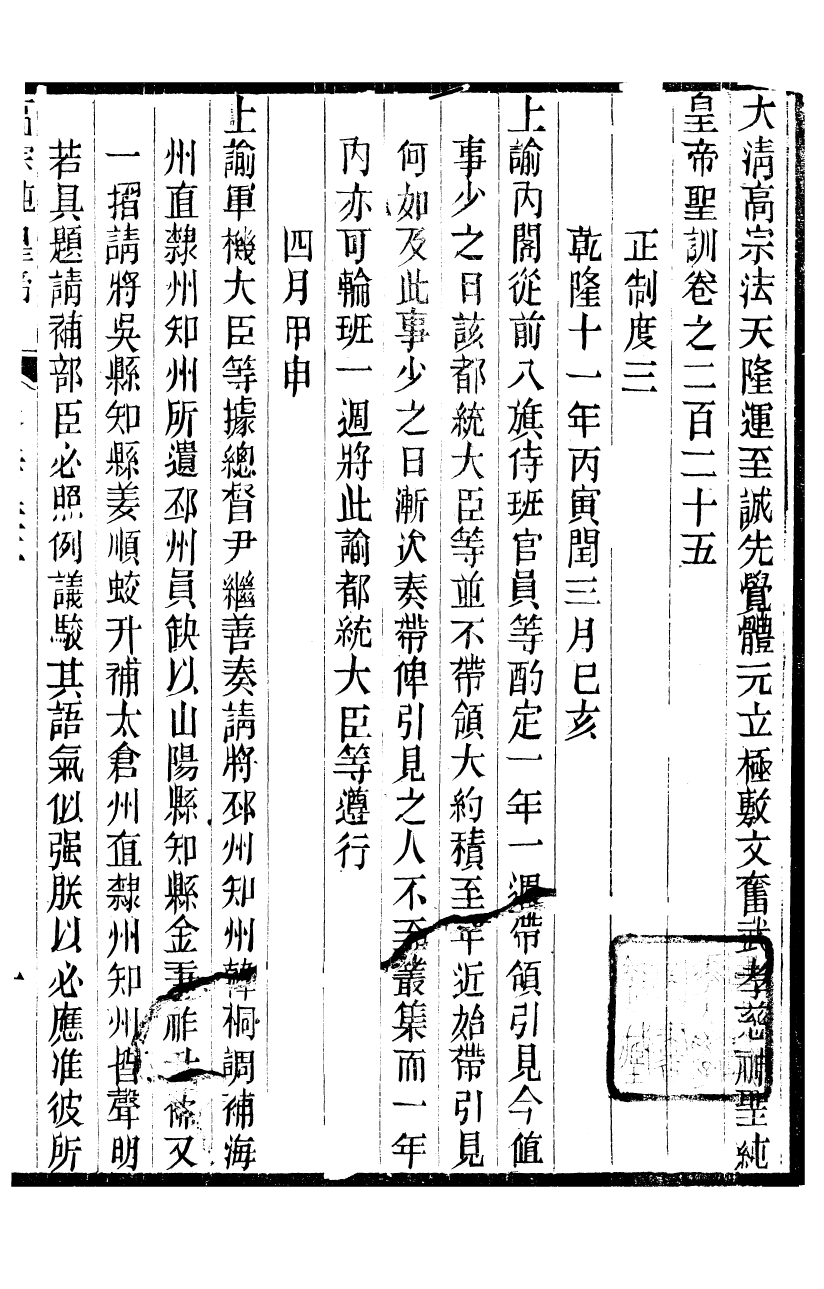 大清高宗法天隆運至誠先覺體元立極敷文奮武孝慈神聖純
皇帝聖訓卷之二百二十五
正制度三
乾隆十一年丙寅閏三月己亥
上諭內閣從前八旗侍班官員等酌定一年一週帶領引見今值
事少之日該都統大臣等並不帶領大約積至年近始帶引見
何如及此事少之日漸次奏帶俾引見之人不至叢集而一年
內亦可輪班一週將此諭都統大臣等遵行
四月甲申
上諭軍機大臣等據總督尹繼善奏請將邳州知州韓桐調補海
州直隸州知州所遺邳州員缺以山陽縣知縣金秉祚升條又
一摺請將吳縣知縣姜順蛟升補太倉州直隸州知州皆聲明
若具題請補部臣必照例議駁其語氣似强朕以必應准彼所
高宗純皇帝